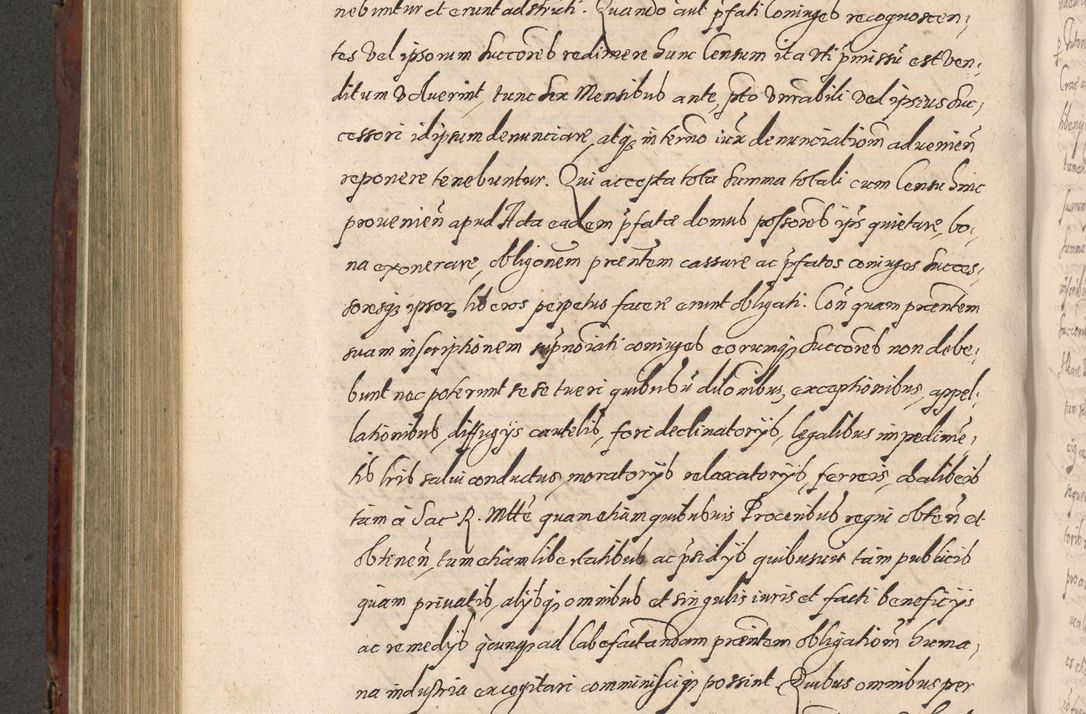 nebuntur et erunt adstricti. Quando aut pfati Coniuges recognoscen,
tes vel ipsorum succores redimere hunc Censum ita vti pmissū est ven,
ditum voluerint, tunc sex Mensibus ante, pto Vnrabili vel ipsius suc,
cessori idipsum denunciare, atq̨ in termo iux denunciationem aduenien̄
reponere tenebuntur. Qui accepta tota summa totali cum Censu hinc
prouenien̄ apud Acta eadem pfatæ domus possores ips quietare, bo,
na exonerare, obligonem præntem cassare ac pfatos coniuges succes,
soresq̨ ipsor, liberos perpetuo facere erunt obligati. Con̄ quam præntem
suam inscriptionem supnoīati coniuges eorumq̨ succores non debe,
bunt nec poterunt se se tueri quibusuis dilonibus, exceptionibus, appel,
lationibus, diffugijs cautelis, fori declinatorijs, legalibus impedimē,
tis lris salui conductus, moratorijs relaxatorijs, ferreis, dalibeis
tam a Sac R. Mtte quam etiam quibusuis Proceribus regni obten̄ et
obtinen̄, tum etiam libertatibus ac psidijs quibusuis tam publicis
quam priuatis, alijsq̨ omnibus et singulis iuris et facti beneficijs
ac remedijs q̄cunq̨ ad labefactandam præntem obligationem huma,
na industria excogitari comminisciq̨ possint. Quibus omnibus per